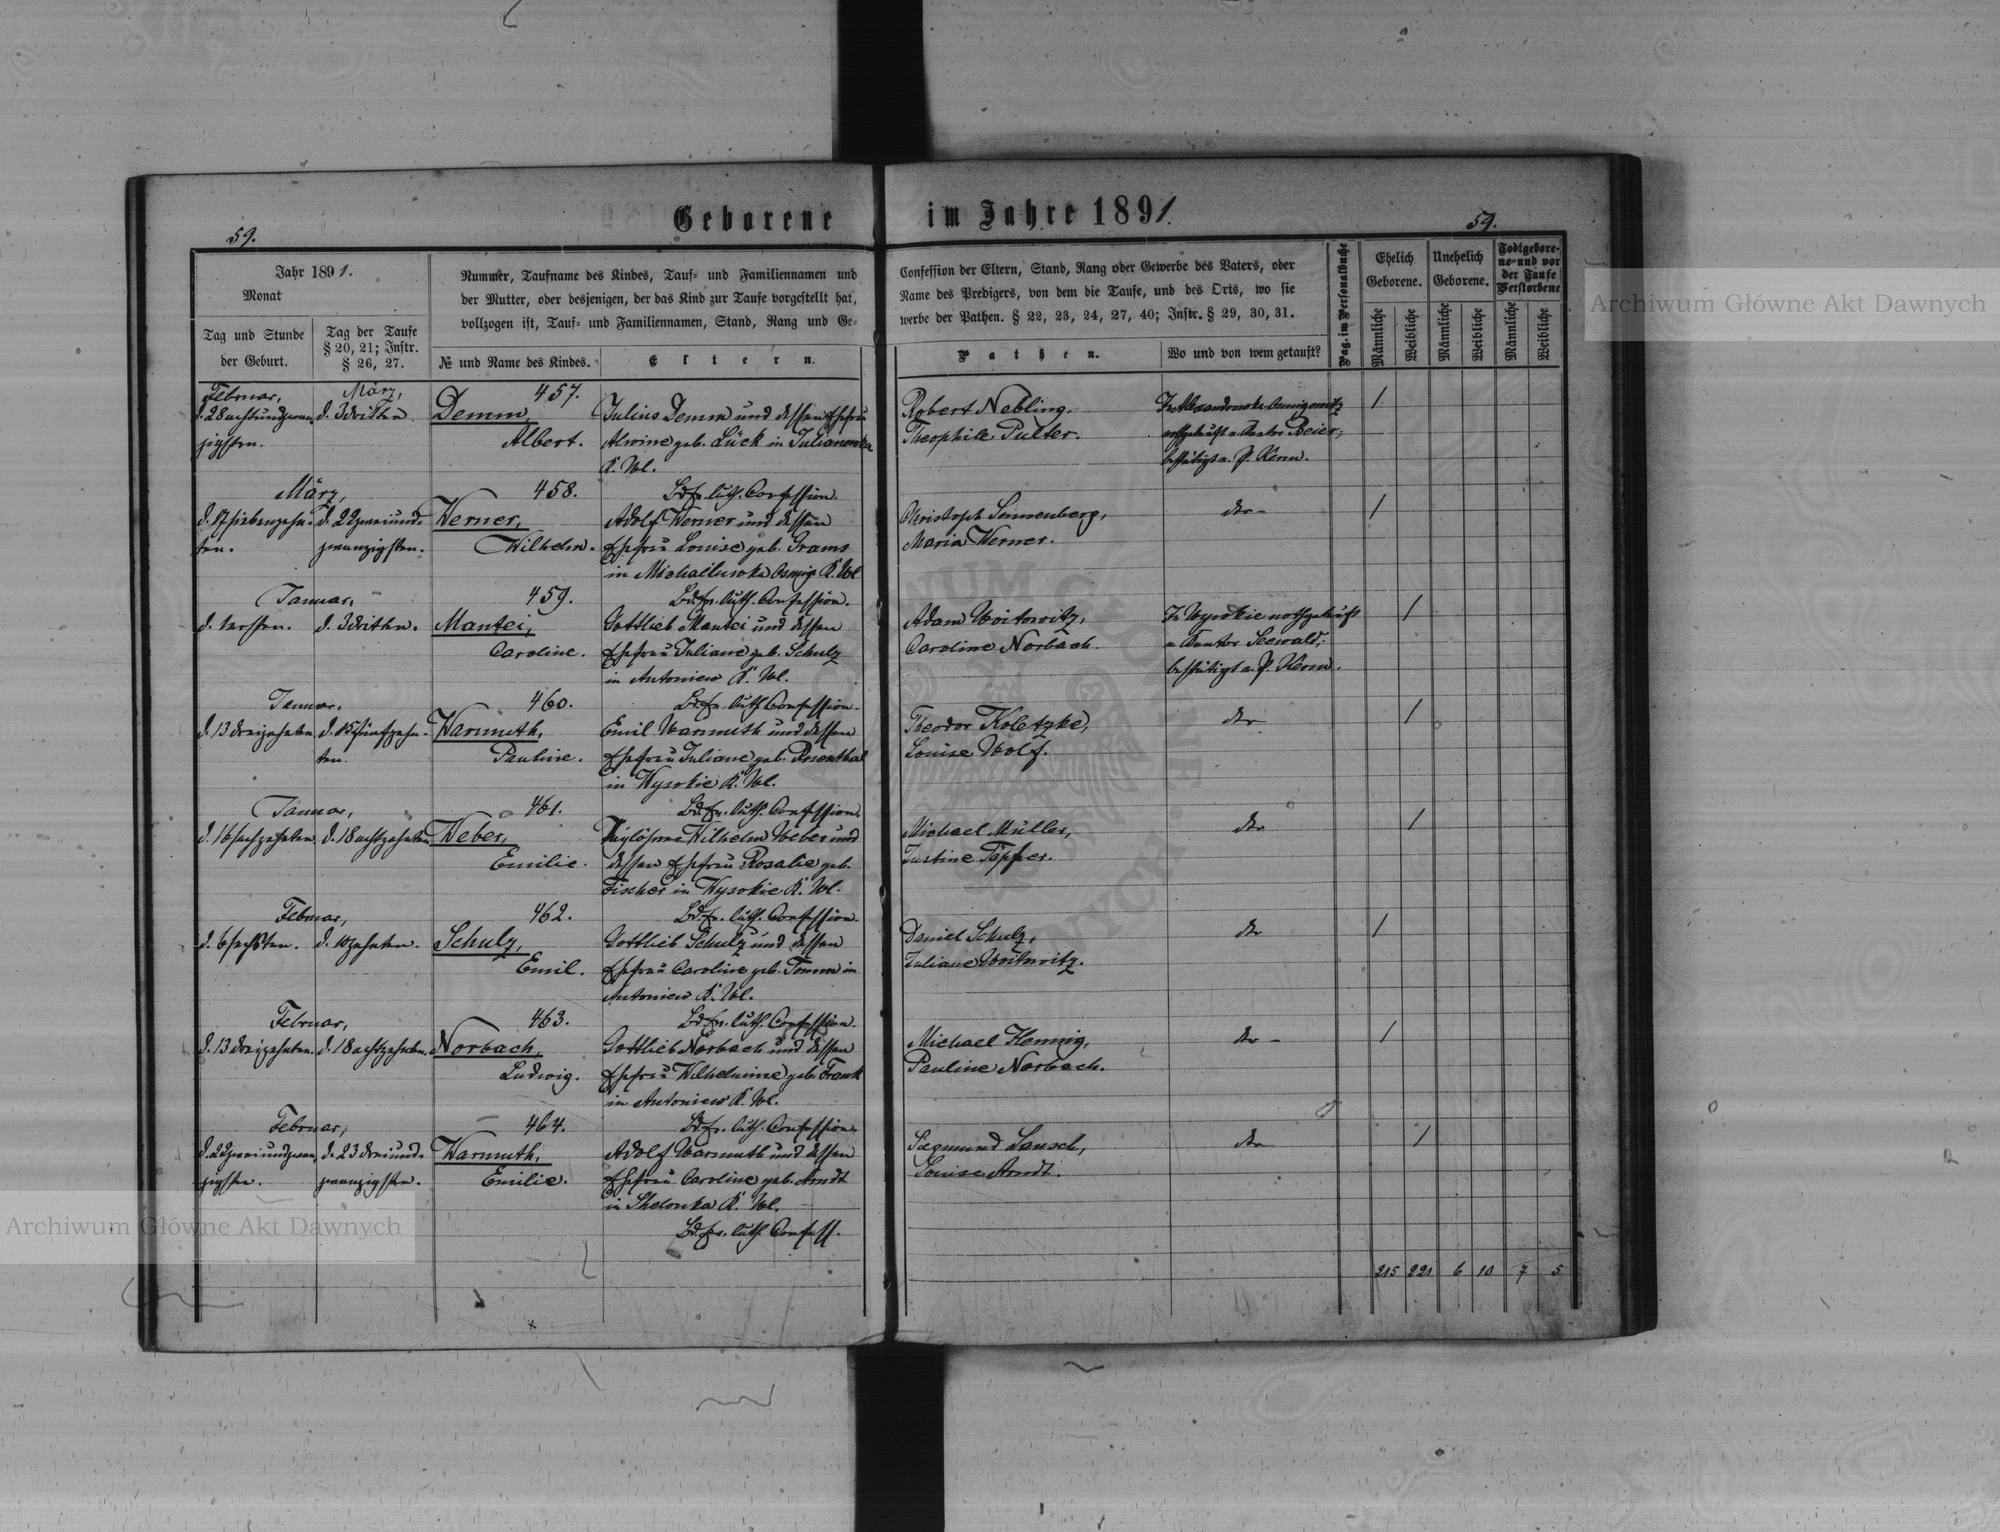 Geborene im Jahre 1891.
59.
59.
Jahr 1891.
Monat
Tag und Stunde
der Geburt.
Tag der Taufe
§ 20, 21; Instr.
§ 26, 27.
Nummer, Taufname des Kindes, Tauf- und Familiennamen und
der Mutter, oder desjenigen, der das Kind zur Taufe vorgestellt hat,
vollzogen ist, Tauf- und Familiennamen, Stand, Rang und Ge-
№ und Name des Kindes.
Eltern.
Confession der Eltern, Stand, Rang oder Gewerbe des Vaters, oder
Name des Predigers, von dem die Taufe, und des Orts, wo sie
werbe der Pathen. § 22, 23, 24, 27, 40; Instr. § 29, 30, 31.
Pathen.
Wo und von wem getauft?
Pag. im Personalbuche
Ehelich
Geborene.
Unehelich
Geborene.
Todtgebore-
ne und vor
der Taufe
Verstorbene
Männliche
Weibliche
Männliche
Weibliche
Männliche
Weibliche
Februar,
März,
457.
d. 28 achtundzwan-
zigsten.
d. 3 dritten
Demm,
Albert.
Julius Demm und dessen Ehefrau
Alwine geb. Lück in Julianowka
K. Wl.
Bd. Er. luth. Confession.
Robert Nebling.
Theophile Pulter.
nothgetauft v. Kantor Beier,
bestätigt v. P. Kerm.
1
März,
458.
d. 17 siebenzehn-
ten.
d. 22 zweiund-
zwanzigsten.
Werner,
Wilhelm.
Adolf Werner und dessen
Ehefrau Louise geb. Grams
in Michailuwka K. Wl.
Bd. Er. luth. Confession.
Christoph Sonnenberg,
Maria Werner.
dto
1
Januar,
459.
d. 1 ersten.
d. 3 dritten.
Mantei,
Caroline.
Gottlieb Mantei und dessen
Ehefrau Juliane geb. Schulz
in Antoniew K. Wl.
Bd. Er. luth. Confession.
Adam Woitowitz,
Caroline Norbach.
In Wysokie nothgetauft
v. Kantor Seewald;
bestätigt v. P. Kerm.
1
Januar,
460.
d. 13 dreizehnten
d. 15 fünfzehn-
ten.
Warmuth,
Pauline.
Emil Warmuth und dessen
Ehefrau Juliane geb. Rosenthal
in Wysokie K. Wl.
Bd. Er. luth. Confession.
Theodor Koletzke,
Louise Wolf.
dto
1
Januar,
461.
d. 16 sechzehnten
d. 18 achtzehnten
Weber,
Emilie.
Wilhelm Weber und
dessen Ehefrau Rosalie geb.
Fischer in Wysokie K. Wl.
Bd. Er. luth. Confession.
Michael Müller,
Justine Töpfer.
dto
1
Februar,
462.
d. 6 sechsten.
d. 10 zehnten.
Schulz,
Emil.
Gottlieb Schulz und dessen
Ehefrau Caroline geb. Tomm in
Antoniew K. Wl.
Bd. Er. luth. Confession.
Daniel Schulz,
Juliane Woitowitz.
dto
1
Februar,
463.
d. 13 dreizehnten.
d. 18 achtzehnten.
Norbach,
Ludwig.
Gottlieb Norbach und dessen
Ehefrau Wilhelmine geb. Frank
in Antoniew K. Wl.
Bd. Er. luth. Confession.
Michael Hennig,
Pauline Norbach.
dto
1
Februar,
464.
d. 22 zweiundzwan-
zigsten.
d. 23 dreiund-
zwanzigsten.
Warmuth,
Emilie.
Adolf Warmuth und dessen
Ehefrau Caroline geb. Arndt
in Shelonka K. Wl.
Bd. Er. luth. Confess.
Siegmund Sausch,
Louise Arndt.
dto
1
215 221 6 10 7 5
Archiwum Główne Akt Dawnych
Archiwum Główne Akt Dawnych